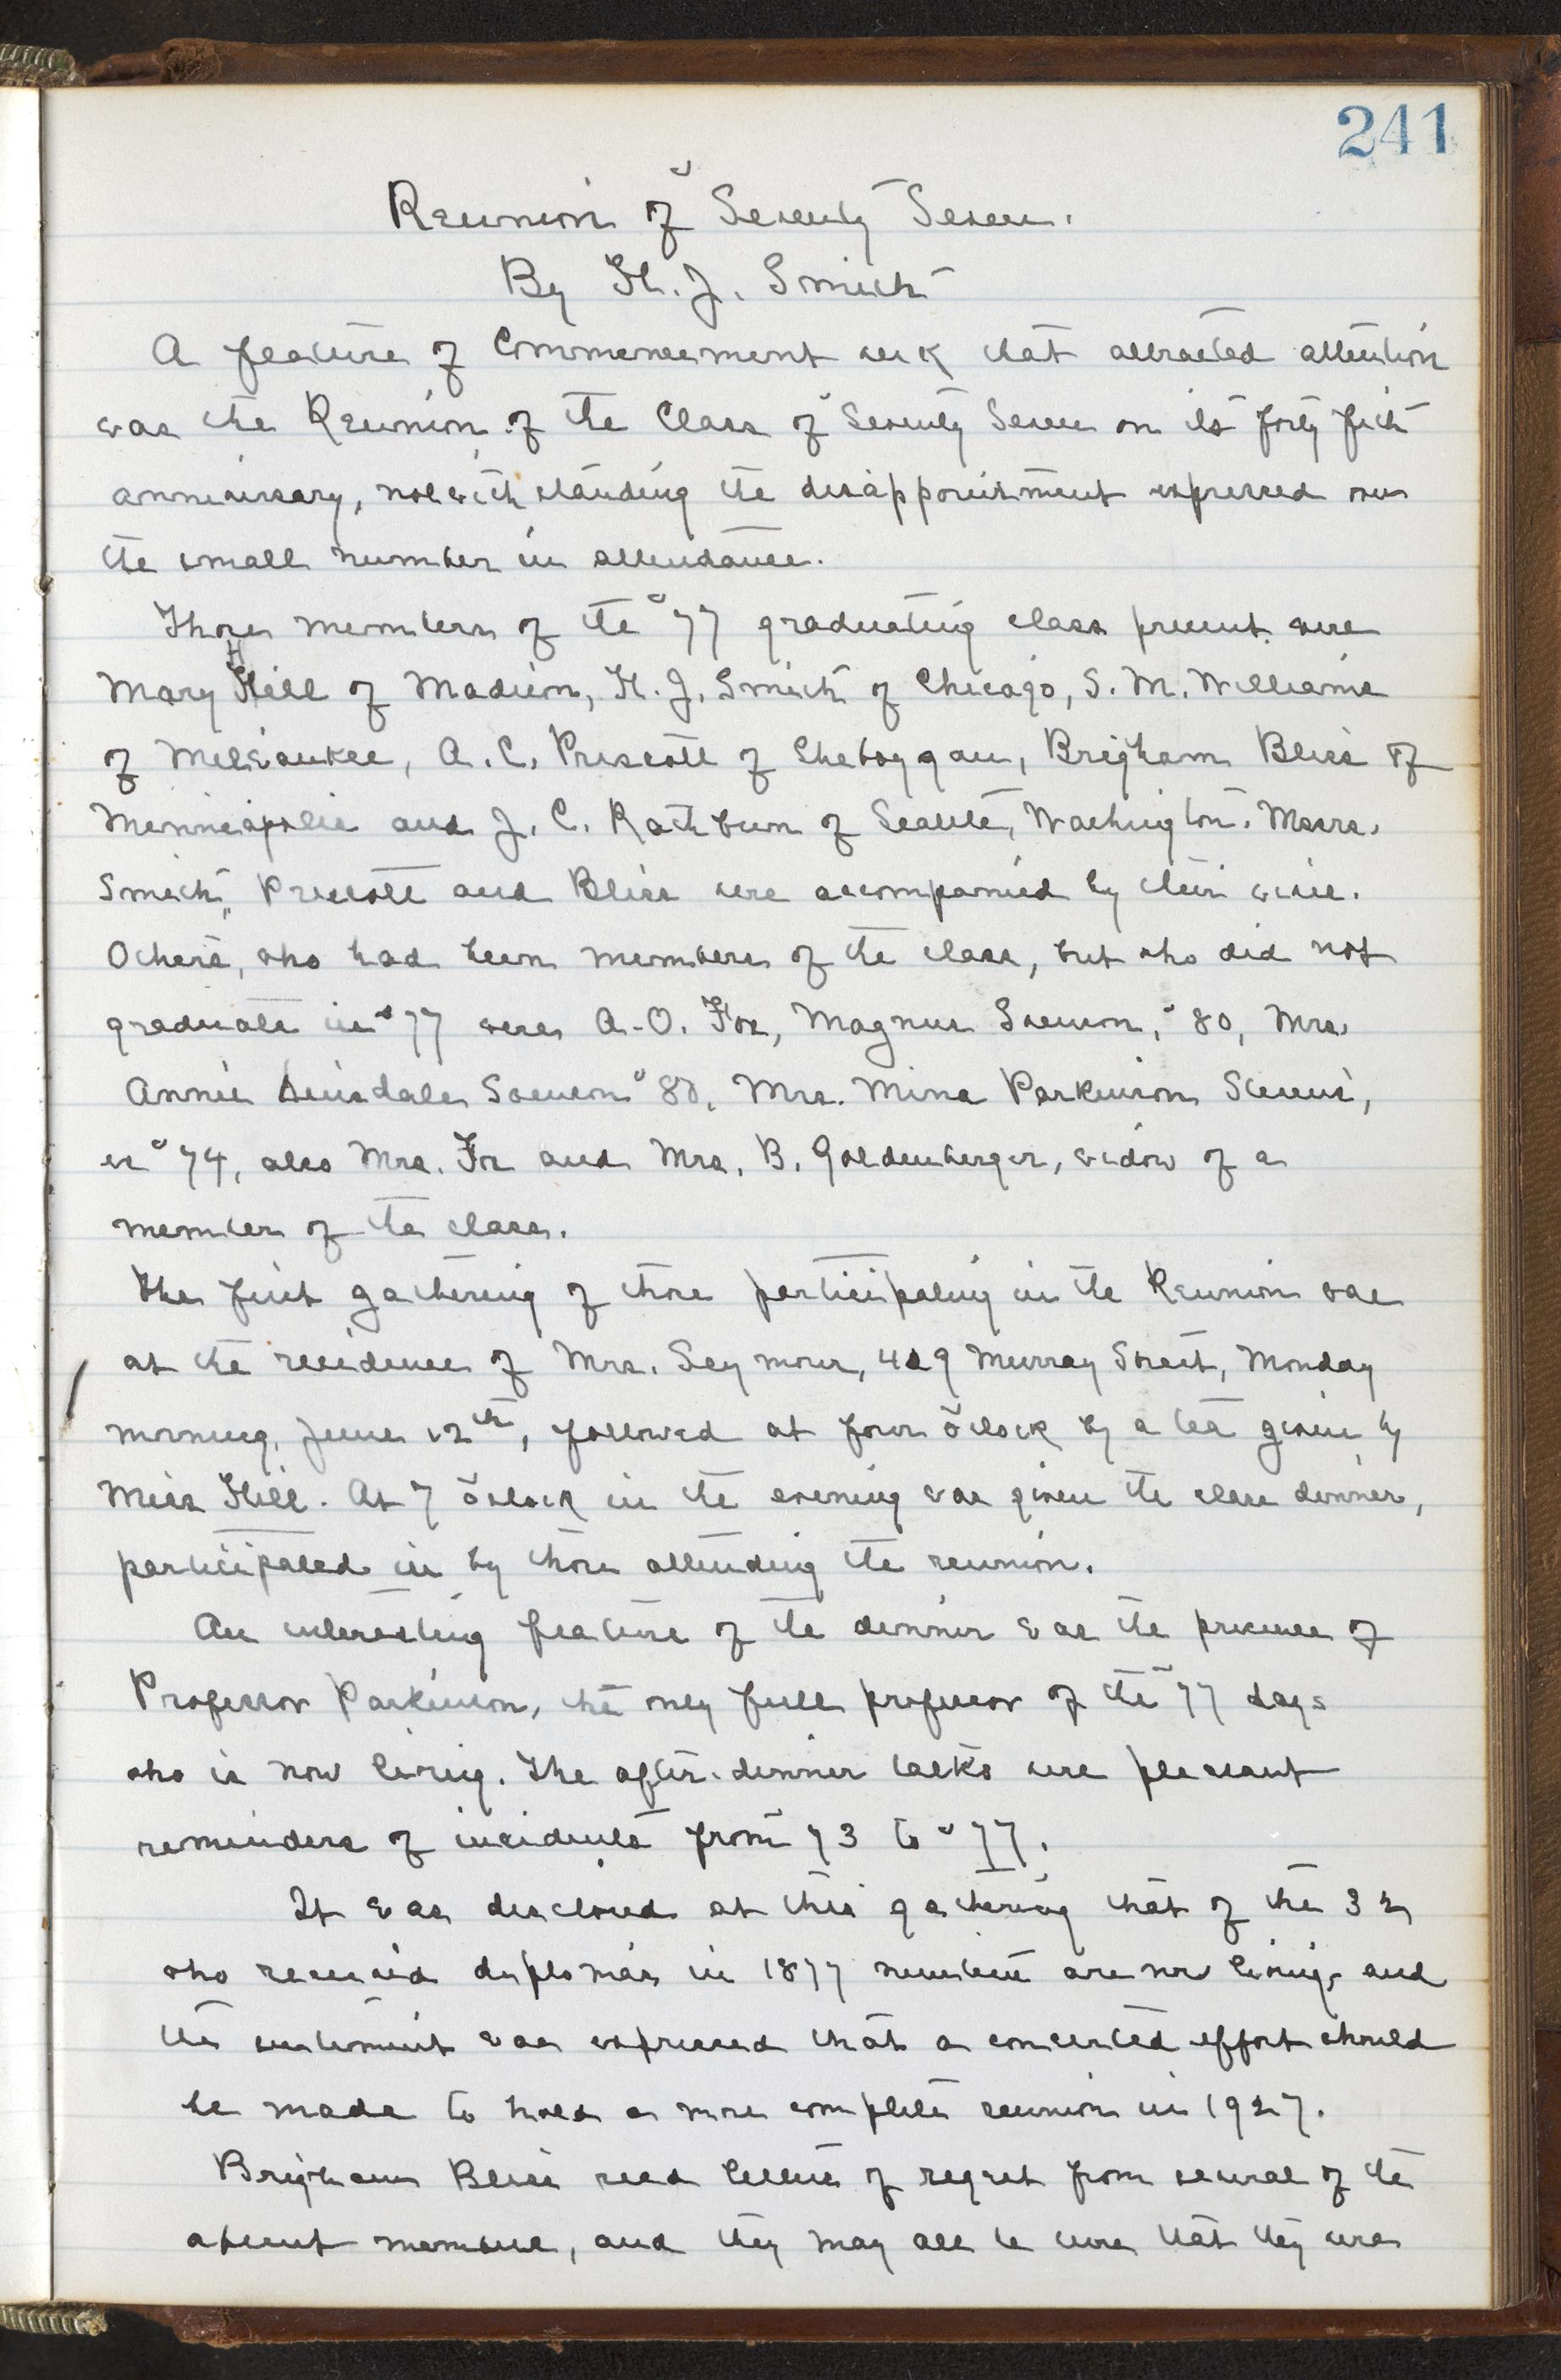 241
Reunion of Seventy Seven.
By H. J. Smith
A feature of Commencement week that attracted attention
was the Reunion of the Class of Seventy Seven on its forty fifth
anniversary, notwithstanding the disappointment expressed over
the small number in attendance.
Those members of the '77 graduating class present were
H
Mary Hill of Madison, H. J. Smith of Chicago, S. M. Williams
of Milwaukee, A. C. Prescott of Sheboygan, Brigham Bliss of
Minneapolis and J. C. Rathbun of Seattle, Washington. Messrs.
Smith, Prescott and Bliss were accompanied by their wives.
Others, who had been members of the class, but who did not
graduate in '77 were A. O. Fox, Magnus Swenson, '80, Mrs.
Annie Dinsdale Swenson '80, Mrs. Mina Parkinson Stevens,
ex '74, also Mrs. Fox and Mrs. B. Goldenberger, widow of a
member of the class.
The first gathering of those participating in the Reunion was
at the residence of Mrs. Seymour, 419 Murray Street, Monday
morning, June 12th, followed at four o'clock by a tea given by
Miss Hill. At 7 o'clock in the evening was given the class dinner,
participated in by those attending the reunion.
An interesting feature of the dinner was the presence of
Professor Parkinson, the only full professor of the '77 days
who is now living. The after-dinner talks were pleasant
reminders of incidents from '73 to '77.
It was disclosed at this gathering that of the 32
who received diplomas in 1877 nineteen are now living, and
the sentiment was expressed that a concerted effort should
be made to hold a more complete reunion in 1927.
Brigham Bliss read letters of regret from several of the
absent members, and they may all be sure that they were